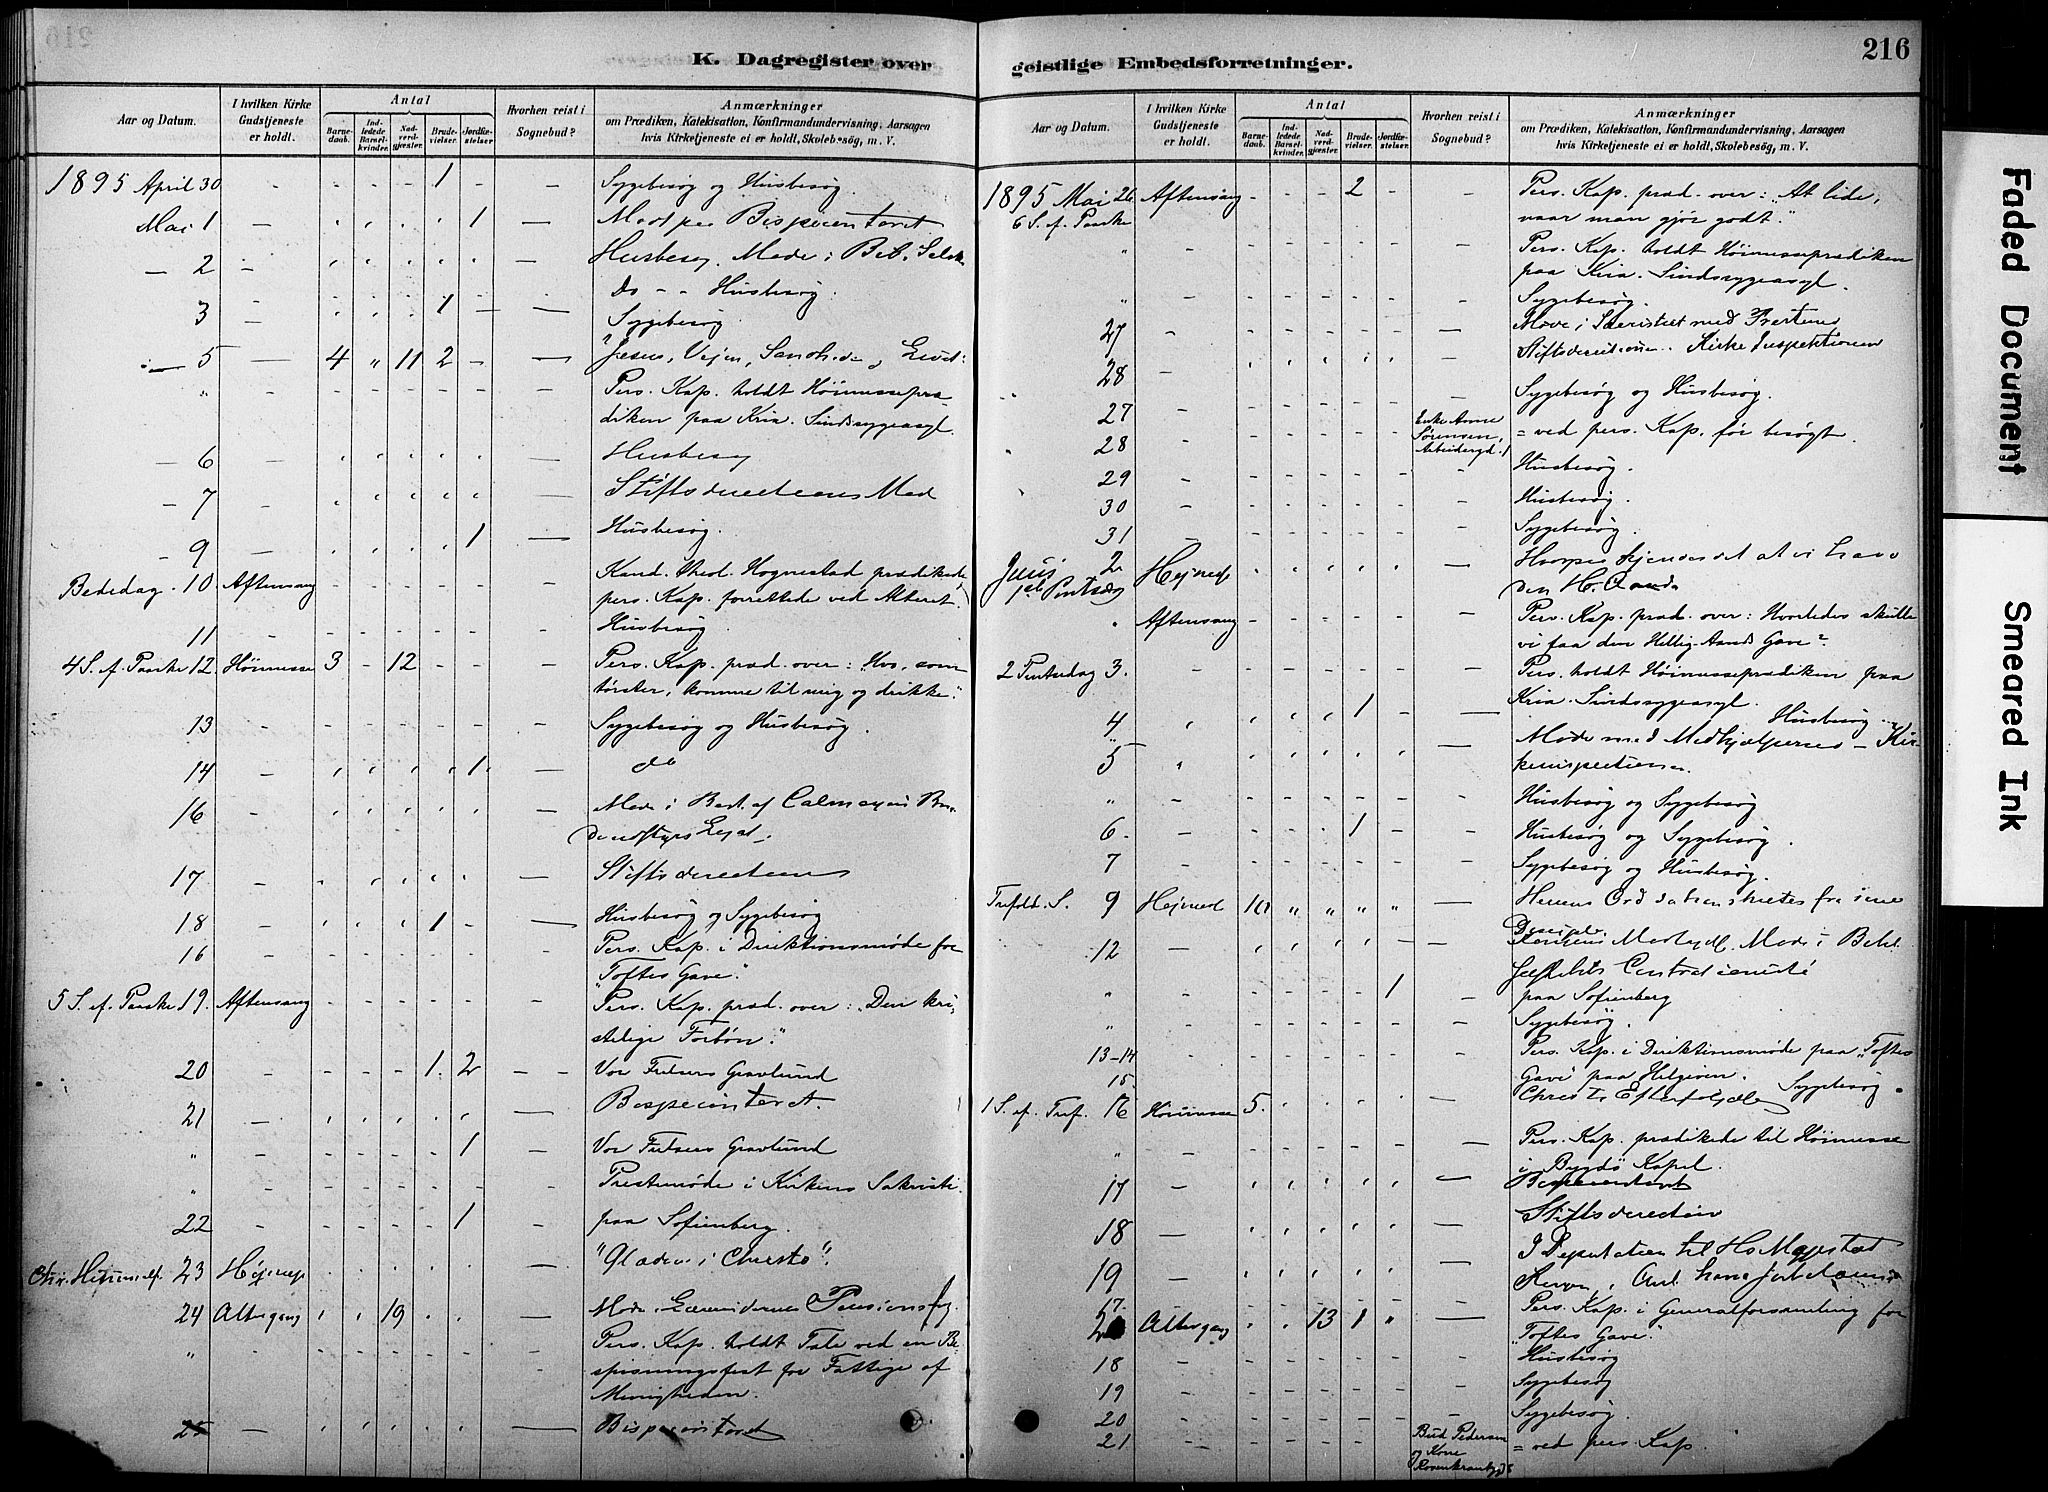 216
K. Dagregister over geistlige Embedsforretninger.
Aar og Datum.
I hvilken Kirke Gudstjeneste er holdt.
Antal
Barnedaab.
Indledede Barselkvinder.
Nadverdgjæster.
Brudevielser.
Jordfæstelser.
Hvorhen reist i Sognebud?
Anmærkninger
om Prædiken, Katekisation, Konfirmandundervisning, Aarsagen
hvis Kirketjeneste ei er holdt, Skolebesög, m. V.
1895 April 30 - - - - 1 - - Sygebesøg og Husbesøg.
Mai 1 - 1 -
- 2 - Husbesøg. Møde i Bib. Selsk.
Do - - Husbesøg.
3 - 1 - - Sygebesøg.
- 5 - 4 " 11 2 - - Jesus, Vejen, Sandheden og Livet.
" Pers. Kap. holdt Høimessepræ-
diken paa Kria. Sindssygeasyl.
- 6 - Husbesøg
- 7 - Stiftsdirectionen Møde
- 9 - 1 - Husbesøg.
Bededag. 10 Aftensang - - - - - - Kand. theol. Hognestad prædikede,
pers. Kap. forrettede ved Alteret.
11 - - - - - - - Husbesøg.
4 S. ef. Paaske 12. Høimesse 3 - 12 - - - Pers. Kap. præd. over: Hvo, som
tørster, komme til mig og drikke."
13 - - - - - - - Sygebesøg og Husbesøg.
14 - 1 - do
16 - Møde i Best. af
Legat.
17 - Stiftsdirectionen
18 - 1 - - Husbesøg og Sygebesøg
16 - - - - - - - Pers. Kap. i Direktionsmøde for
"Toftes Gave".
5 S. ef. Paaske 19. Aftensang - - - - - - Pers. Kap. præd. over: "Den kri-
stelige Forbøn."
20 - - - - 1. 2 - - Vor Frelsers Gravlund
21 - Bispecontoret.
" - - - - - 1 - Vor Frelsers Gravlund
" - - - - - - - Prestemøde i Kirkens Sakristi.
22 - - - - - 1 - paa Sofienberg.
23 "Glæden i Christo".
24 Altergang 19 - Møde
" Pers. Kap. holdt Tale ved en Be-
spisningsfest for Fattige af
Menigheden.
25 - Bispecontoret
Aar og Datum.
I hvilken Kirke Gudstjeneste er holdt.
Antal
Barnedaab.
Indledede Barselkvinder.
Nadverdgjæster.
Brudevielser.
Jordfæstelser.
Hvorhen reist i Sognebud?
Anmærkninger
om Prædiken, Katekisation, Konfirmandundervisning, Aarsagen
hvis Kirketjeneste ei er holdt, Skolebesög, m. V.
1895 Mai 26 Aftensang - - - 2 - - Pers. Kap. præd. over: "At lide,
6 S. ef. Paaske vaar man gjør godt."
" - - - - - - - Pers. Kap. holdt Høimesseprædiken
paa Kria. Sindssygeasyl.
" - - - - - - - Sygebesøg.
27 - Møde i Sacristiet med Presterne
28 - Stiftsdirectionen. Kirke Inspektionen
" - - - - - - Sygebesøg og Husbesøg.
27 - - - - - - Enke Anne Sørensen, Arbeidergd. 1 = ved pers. Kap. før besøgt.
28 - - - - - - - Husbesøg.
29 - - - - - - - Husbesøg.
30 - - - - - - - Sygebesøg.
31 - - - - - -
Juni 2 Hvorpaa kjendes det at vi have
1ste Pintsedag den H. Aand.
" Aftensang - - - - - - Pers. Kap. præd. over: Hvorledes skulle
vi faa den Hellig-Aands Gave?
2 Pintsedag 3. - - - - - - - Pers. holdt Høimesseprædiken paa
Kria. Sindssygeasyl.
4 1 - - Husbesøg.
5 " - Møde med Medhjælperne - Kir-
keinspectionen.
" - - - - - - - Husbesøg og Sygebesøg
6. - - - - 1 - - Husbesøg og Sygebesøg.
7 - - - - - - - Sygebesøg og Husbesøg.
Trefold. S. 9 10 " " " " - Herrens Ord
12 - Møde i
" - - - - - 1 - paa Sofienberg
" - - - - - - - Sygebesøg.
13-14 - - - - - - - Pers. Kap. i Direktionsmøde paa "Toftes
Gave" paa Helgøen.
15. Sygebesøg.
1 S. ef. Tref. 16 Høimesse 5. Christi Efterfølgelse
" - Pers. Kap. prædikede til Høimesse
i Bygdø Kapel.
17 - Bispecontoret
18 - Stiftsdirection
19 I Deputation til Hs Majestæt
Kongen,
17. Pers. Kap. i Generalforsamling for
"Toftes Gave".
Altergang 13 1 "
18 - - - - - - - Husbesøg
19 - - - - - - - Sygebesøg
20 - - - - - - - Sygebesøg.
21 - - - - - - Bud Pedersen og Kone = ved pers. Kap.
Faded Document
Smeared Ink